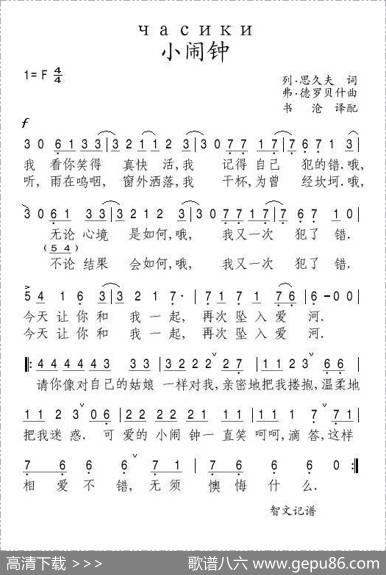 часики
小闹钟
1=F 4/4
列·思久夫 词
弗·德罗贝什曲
书 沧 译配
f
3 0 6 1 3 3 | 3 2 1 2 3 | 3 0 7 7 1 7 | 7 6 7 1 3 |
我 看你笑得 真快 活,我 记得自己 犯的错.哦,
听,雨在呜咽, 窗外洒落,我 干杯,为曾 经坎坷.哦,
3 0 6 1 3 3 | 3 2 1 2 3 | 3 0 7 7 1 7 | 7 6 7 1 0 |
无论心境 是如何,哦, 我又一次 犯了错.
(5 4)
不论结果 会如何,哦, 我又一次 犯了错.
5 4 1 6 3 4 | 3 2 1 7 · | 7 1 7 1 7 6 | 6 - 0 0 |
今天让你和 我一起, 再次坠入爱 河.
今天让你和 我一起, 再次坠入爱 河.
请你像对自己的姑娘 一样对我,亲密地把我搂抱,温柔地
把我迷惑. 可爱的小闹 钟一直笑 呵呵,滴答,这样
7 6 6 6 | 7 6 6 7 1 | 7 6 7 6 | 6 0 :||
相爱不错,无须 懊悔什么.
智文记谱
高清下载 >>>
歌谱八六 www.gepu86.com